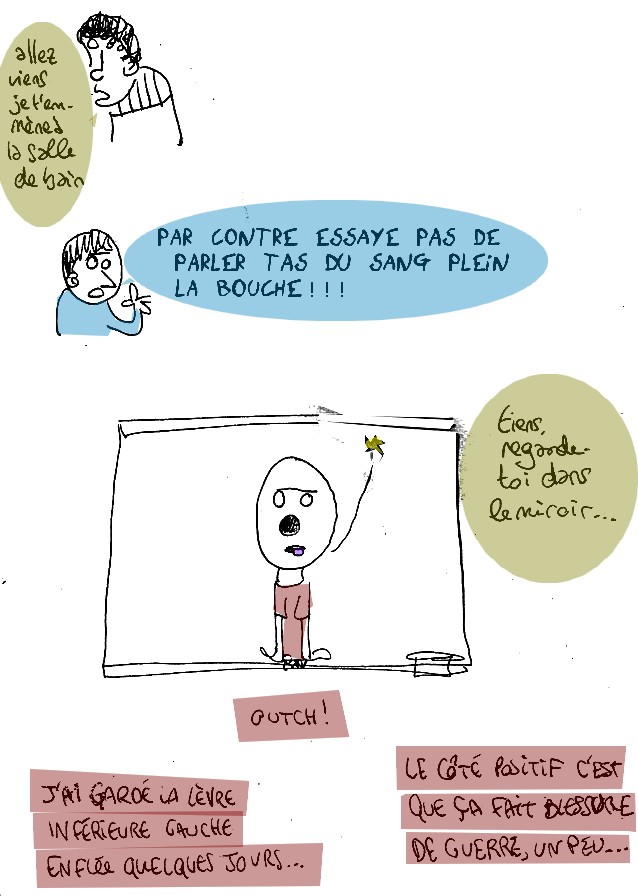 allez
viens
je t'em-
mène à
la salle
de bain
PAR CONTRE ESSAYE PAS DE
PARLER TAS DU SANG PLEIN
LA BOUCHE!!!
tiens,
regarde-
toi dans
le miroir...
OUTCH!
J'AI GARDÉ LA LÈVRE
INFÉRIEURE GAUCHE
ENFLÉE QUELQUES JOURS...
LE CÔTÉ POSITIF C'EST
QUE ÇA FAIT BLESSURE
DE GUERRE, UN PEU...